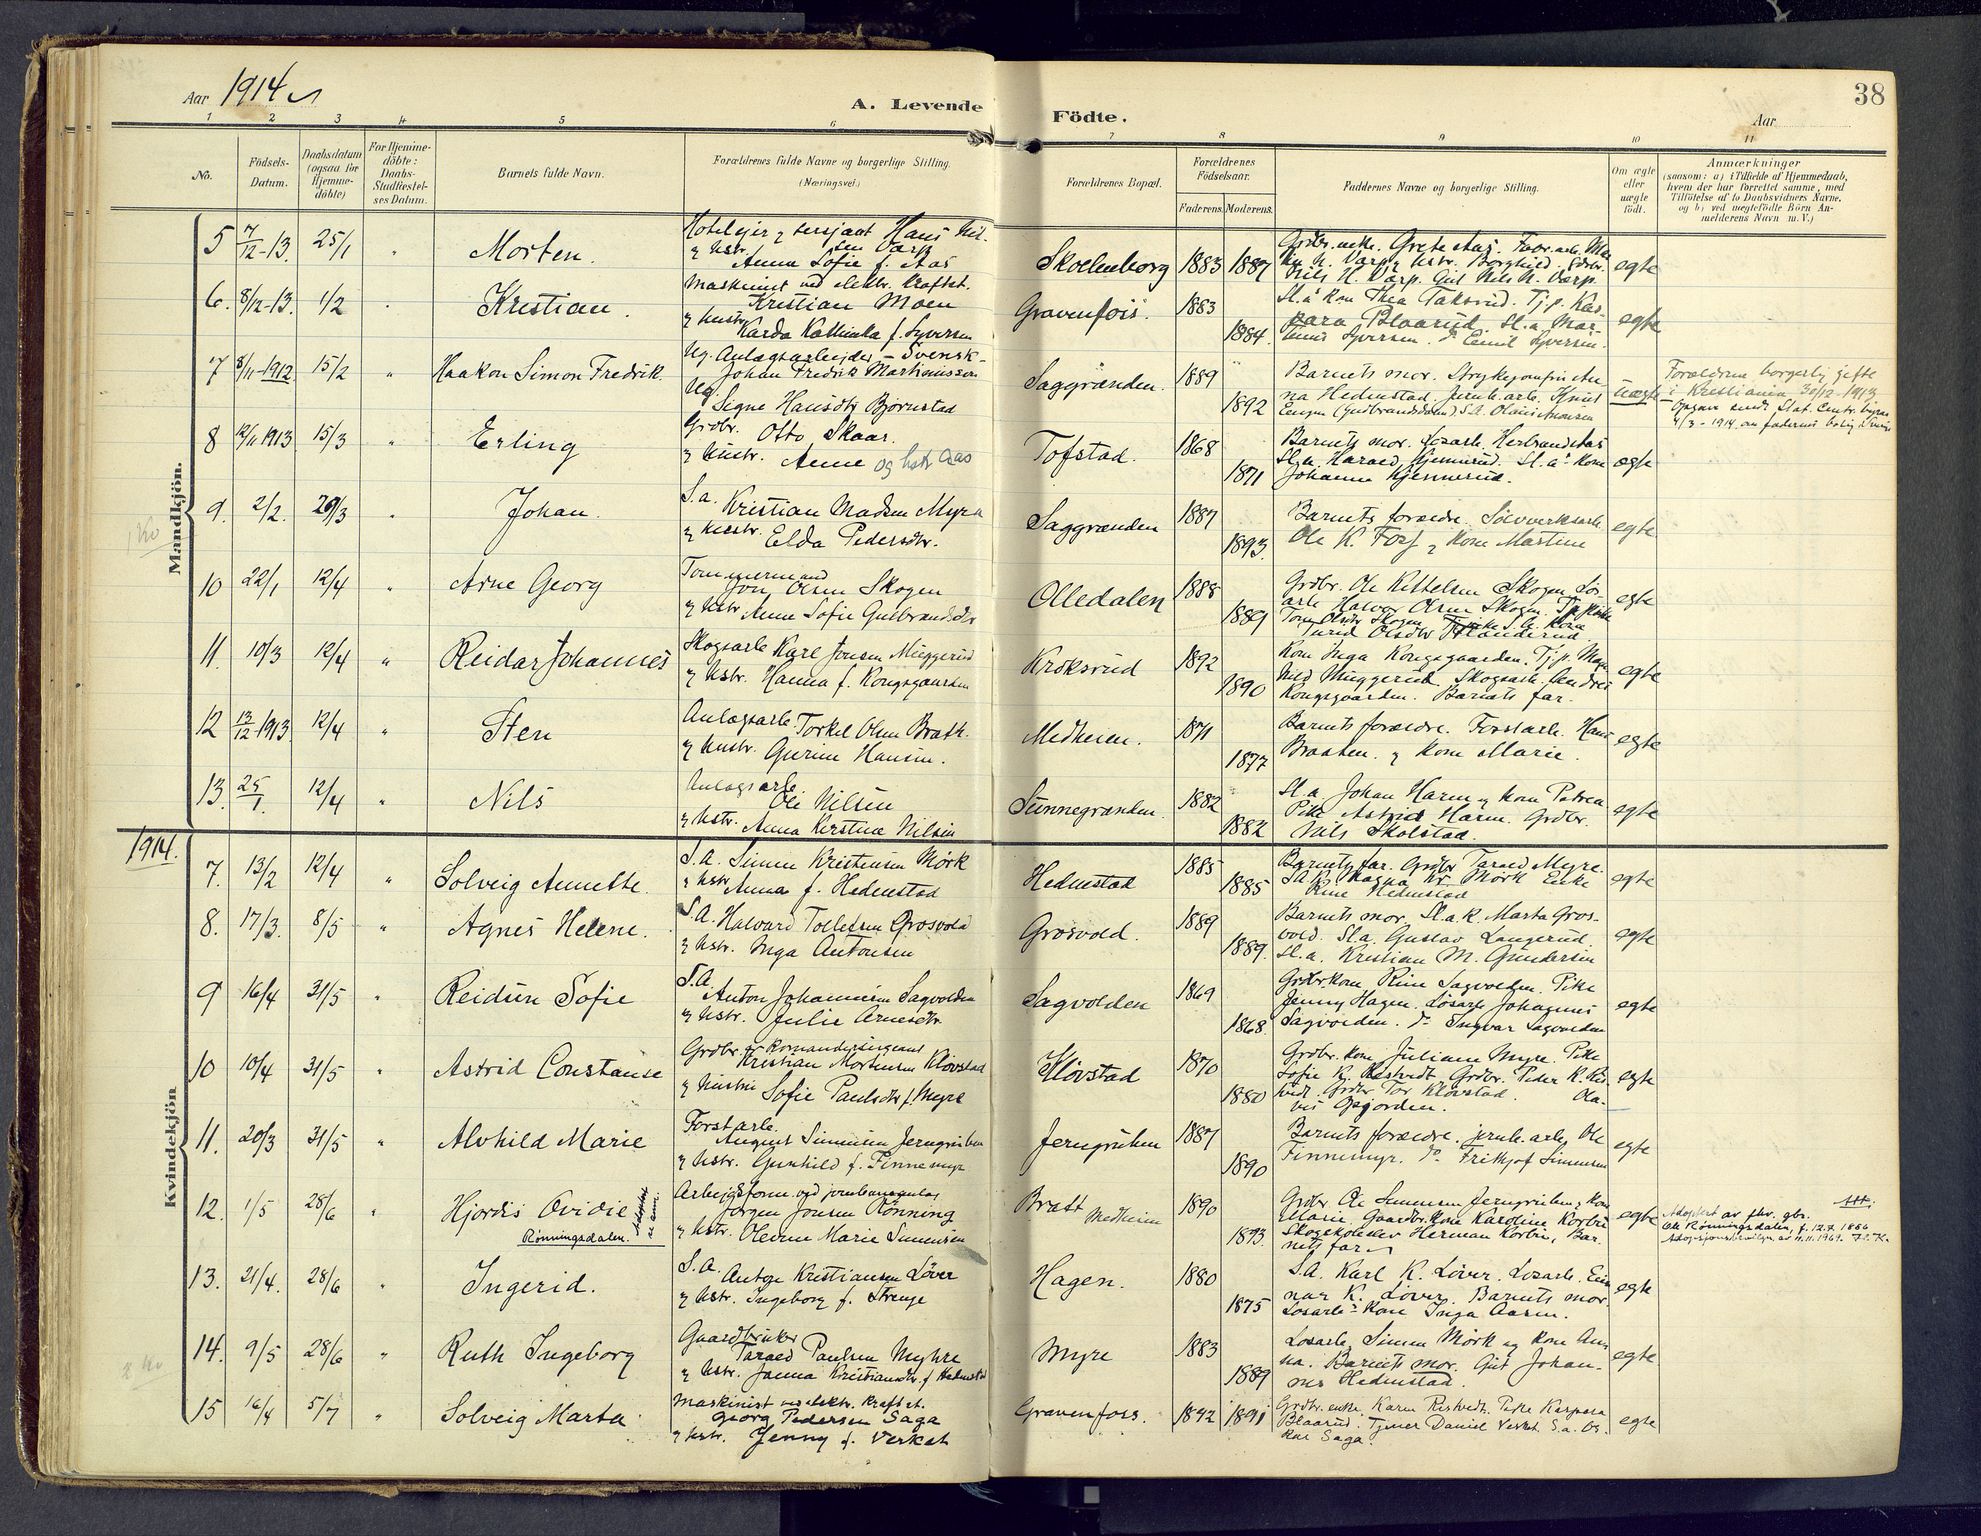 Aar 1914
A. Levende
Födte.
38
Aar
1 2 3 4 5 6 7 8 9 10 11
No.
Födsels-
Datum.
Daabsdatum
(ogsaa for
Hjemme-
döbte)
For Hjemme-
döbte:
Daabs-
Stadfæstel-
ses Datum.
Barnets fulde Navn.
Forældrenes fulde Navne og borgerlige Stilling.
(Næringsvei.)
Forældrenes Bopæl.
Forældrenes
Födselsaar.
Faderens. Moderens.
Faddernes Navne og borgerlige Stilling.
Om ægte
eller
uægte
födt.
Anmærkninger
(saasom: a) i Tilfælde af Hjemmedaab,
hvem der har forrettet samme, med
Tilföielse af to Daabsvidners Navne,
og b) ved uægtefödte Börn An-
melderens Navn m. V.)
Mandkjön.
5 7/12-13. 25/1 " Morten.
Hotelejer & sersjant Hans Nil-
sen Varp
& hstr. Anna Sofie f. Aas
Skollenborg 1883 1887
Grdbr. enke. Grete Aas. Fabr. arb.
Nils H. Varp. Gut Nils N. Varp.
egte
6. 8/12-13. 1/2 " Kristian.
Maskinist ved elektr. kraftst.
Kristian Moen
& hustr. Karda Kathinka f. Syversen
Gravenfoss. 1883 1884
St.a. kone Thea Taksrud. Tj.p. Kas-
para Blaarud. St.a. Mar-
tinus Syversen. do Emil Syversen.
egte
7 8/11-1912. 15/2 " Haakon Simon Fredrik.
Ug. Anlægsarbejder - Svensk -
Johan Fredrik Martinusson
Ug. Signe Hansdtr Bjørnstad
Saggrænden. 1889 1892
Barnets mor. Strykejomfru An-
na Hedenstad. Jernb. arb. Knut
Engen (Gudbrandsdøl) S.A. Olaus Amonsen
uægte
Forældrene borgerlig gifte
i Kristiania 30/12-1913
Opgave sendt Stat. Centr. byraa
4/3-1914 om faderens bolig
8 12/11 1913 15/3 " Erling
Grdbr. Otto Skaar.
& hustr. Anne og hstr Aas
Tofstad. 1868 1871
Barnets mor. Løsarb. Herbrand Aas
St.a. Harald Hjennerud. St.a. kone
Johanna Hjennerud.
egte
9. 2/2. 29/3 " Johan.
S.a. Kristian Madsen Myra
& hustr. Elda Pedersdtr.
Saggrænden 1887 1893.
Barnets forældre. Sølvverksarb.
Ole K. Foss & kone Martine
egte
10 22/1 12/4 " Arne Georg
Tømmermand
Jon Olsen Skogen
& hstr. Anne Sofie Gulbrandsdtr
Olledalen 1888 1889
Grdbr. Ole Kittelsen Skogen. Løs-
arb. Halvor Olsen Skogen. Tj. pike
Tone Olsdtr Skogen. S.A. kone
Turid Olsdtr
egte
11. 10/3 12/4 " Reidar Johannes
Skogsarb. Karl Jonsen Muggerud
& hstr. Hanna f. Kongsgaarden
Kroksrud 1892 1890
Kone Inga Kongsgaarden. Tj.p. Mag-
nild Muggerud. Skogsarb. Andres
Kongsgaarden. Barnets far.
egte
12 13/12-1913. 12/4 " Sten
Anlægsarb. Torkel Olsen Brath.
& hustr. Gurine Hansen.
Medheien. 1871 1877
Barnets forældre. Forstarb. Hans
Braaten & kone Marie.
egte
13. 25/1. 12/4 " Nils
Anlægsarb. Ole Nilsen
& hstr. Anna Kerstine Nilsen
Sunnegrænden. 1882 1882
St.a. Johan Harm & kone Petrea
Pike Astrid Harm. Grdbr.
Nils Skolstad.
egte
1914.
Kvindekjön
7. 13/2 12/4 " Solveig Annette.
S.A. Simen Kristiansen Mørk
& hstr. Anna f. Hedenstad
Hedenstad 1885 1885
Barnets far. Grdbr Tarald Myre.
S.A.K. Ragna Mørk Enke
Rine Hedenstad
egte
8. 17/3. 8/5 " Agnes Helene.
S.A. Halvard Tollefsen Grosvold
& hstr. Inga Antonsen
Grosvold. 1889 1889.
Barnets mor. St.a.k. Marta Gros-
vold. St.a. Gustav Langerud.
St.a. Kristian M. Gundersen
egte
9 16/4 31/5 " Reidun Sofie
S.A. Anton Johannesen Sagvolden
& hstr. Julie Arnesdtr.
Sagvolden 1869 1868.
Grdbr. kone Rine Sagvolden. Pike
Jenny Hagen. Løsarb. Johannes
Sagvolden. do Ingvar Sagvolden
egte
10 10/4 31/5 " Astrid Constanse
Grdbr. & Komandersergeant
Kristian Mortensen Kløvstad
& hustru Sofie Paulsdtr f. Myre
Kløvstad 1870 1880
Grdbr. kone Juliane Myre. Pike
Sofie K. Ristvedt. Grdbr. Peder K. Rist-
vedt. Grdbr Tor Kløvstad. Ola-
vis Gjorden.
egte
11. 20/3 31/5 " Alvhild Marie
Forstarb.
August Simensen Jerngruben
& hstr. Gunhild f. Finnemyr
Jerngruben 1887 1890
Barnets forældre. jernb. arb. Ole
Finnemyr. do Fritjof Simensen
egte
12. 1/5 28/6 " Hjordis Ovidie
Rønningsdalen.
Adoptert
Arbejdsform. ved jernbaneanlæg
Jørgen Jonsen Rønning
& hstr. Oleane Marie Simensen
Bratt Medheien 1890 1893
Grdbr Ole Simensen Jerngruben & kone
Marie. Gaardbr. kone Karoline Korbu
Skogskoleelev Herman Korbu, Bar-
nets far
egte
Adoptert av fhv. gbr.
Ole Rønningsdalen, f. 12.7.1886
Adopsjonsbevilgn. av 11.11.1969. H.K.
13. 21/4. 28/6 " Ingerid.
S.A. Anton Kristiansen Løver
& hstr. Ingeborg f. Strenge
Hagen. 1880 1875
S.A. Karl K. Løver. Løsarb. Ei-
nar K. Løver. Barnets mor.
Løsarb. kone Inga Aasen.
egte
14. 9/5 28/6 " Ruth Ingeborg
Gaardbruker
Tarald Paulsen Myhre
& hstr. Janna Kristiansdtr. f. Hedenstad
Myre 1883 1889
Løsarb. Simen Mørk og kone An-
na. Barnets mor. Gut Johan-
nes Hedenstad.
egte
15 16/4 5/7 " Solveig Marta
Maskinist ved elektr. kraftst.
Georg Pedersen Saga
& hstr. Jenny f. Verket
Gravenfoss. 1892 1891
Grdbr. enke Karen Ristvedt. Pike Kaspara
Blaarud. Tjener Daniel Verket. S.a. Os-
kar Saga.
egte